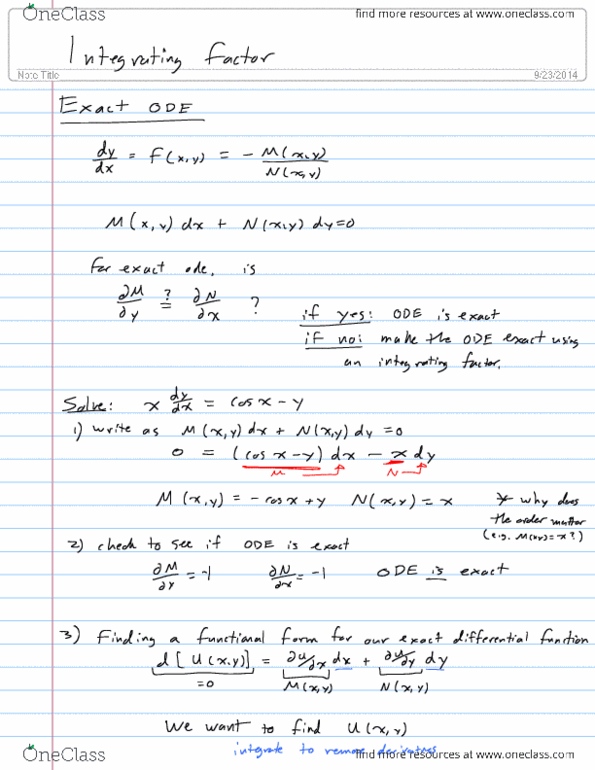 OneClass find more resources at www.oneclass.com
Integrating Factor
Note Title 9/23/2014
Exact ODE
dy/dx = F(x,y) = - M(x,y)/N(x,y)
M(x,y) dx + N(x,y) dy = 0
For exact ode, is
∂M/∂y ?= ∂N/∂x ?
if yes: ODE is exact
if no: make the ODE exact using
an integrating factor.
Solve: x dy/dx = cos x - y
1) write as M(x,y) dx + N(x,y) dy = 0
0 = (cos x - y) dx - x dy
M N
M(x,y) = - cos x + y N(x,y) = x
* why does
the order matter
(e.g. M(x,y) = x?)
2) check to see if ODE is exact
∂M/∂y = -1 ∂N/∂x = -1 ODE is exact
3) Finding a functional form for our exact differential function
d[U(x,y)] = ∂u/∂x dx + ∂u/∂y dy
=0 M(x,y) N(x,y)
We want to find U(x,y)
integrate to remove derivatives
OneClass find more resources at www.oneclass.com